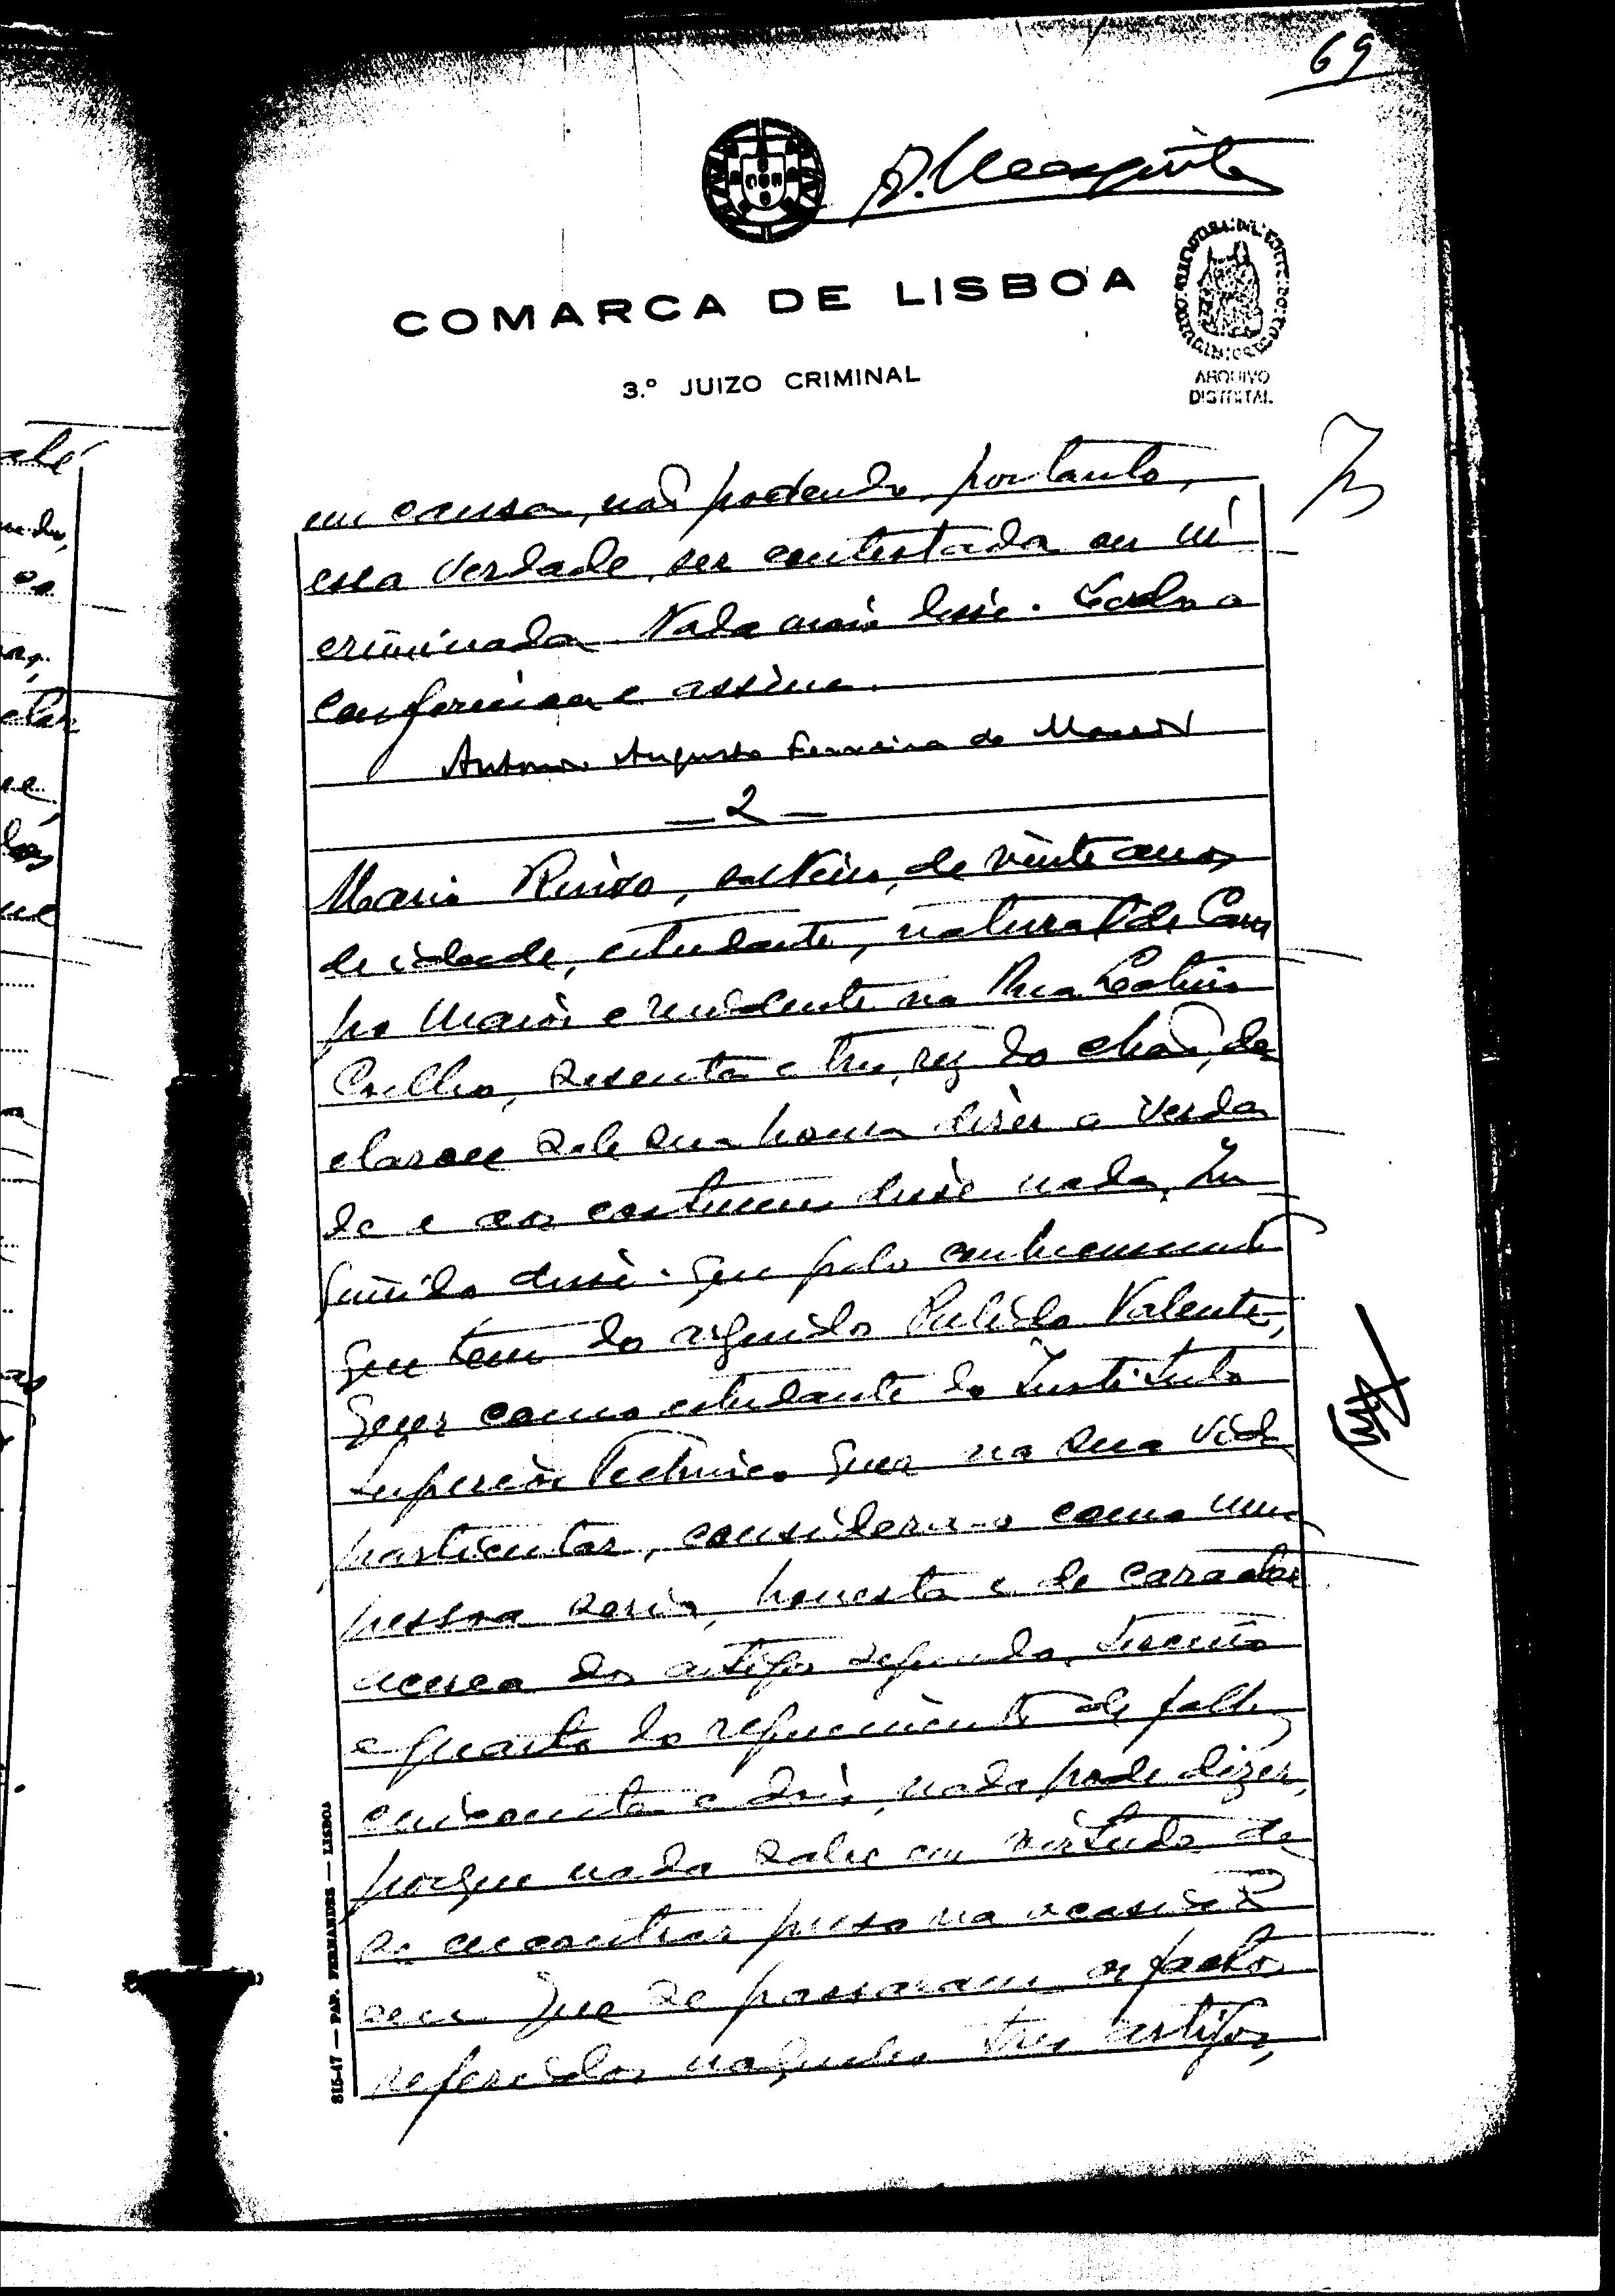 69
COMARCA DE LISBOA
3.º JUIZO CRIMINAL
ARQUIVO
DISTRITAL
em causa, não podendo, portanto,
essa verdade, ser contestada ou in
criminada. Nada mais disse. Lido o
conforma e assina.
Antonio Augusto Ferreira de Macedo
— 2 —
Mario Ruivo, solteiro, de vinte anos
de idade, estudante, natural de Cam
po Maior e residente na Rua Latino
Coelho, sesenta e tres, rez do chão, de
clarou sob sua honra dizer a verda
de e aos costumes disse nada. In
quirido disse: que pelo conhecimento
que tem do arguido Pulido Valente,
quer como estudante do Instituto
Superior Tecnico quer na sua vida
particular, considera-o como uma
pessoa seria, honesta e de caracter
acerca dos artigos segundo, terceiro
e quarto do requerimento de folhas
cincoenta e dois, nada pode dizer,
porque nada sabe em virtude de
se encontrar preso na ocasião
em que se passaram os factos
referidos naqueles tres artigos,
815-47 — PAP. FERNANDES — LISBOA